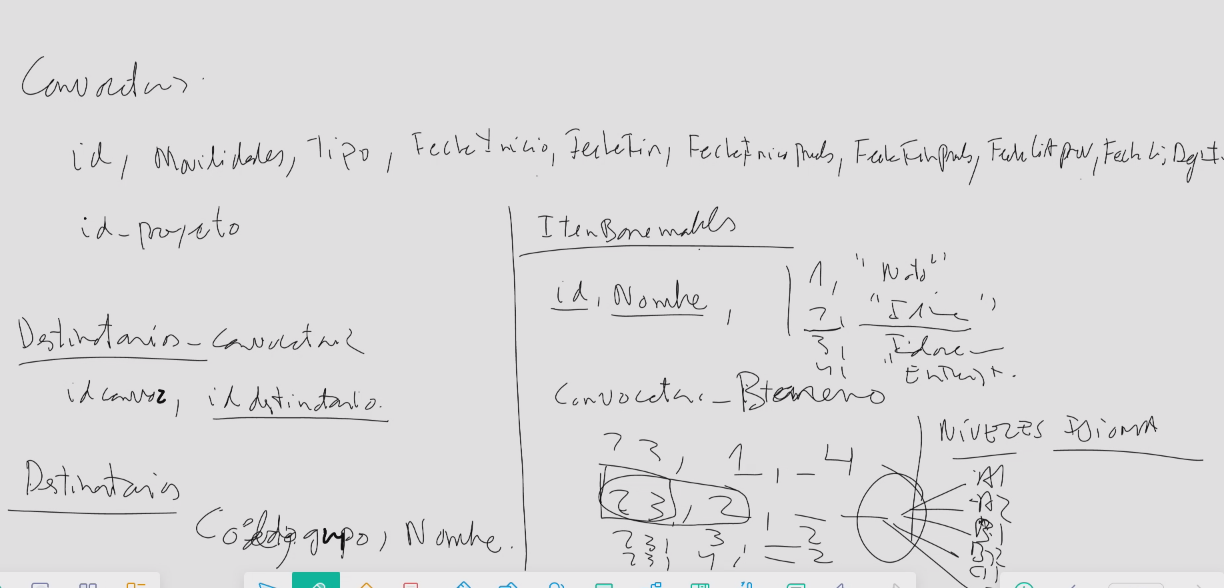 Convocatorias
id, Movilidades, Tipo, FechaInicio, FechaFin, FechaInicioPruebs, FechaFinPruebs,
id-proyecto
Destinatarios-convocatoria
idconvoz, iddestinatario.
Destinatarios
Codigogrupo, Nombre.
ItemBaremables
id, Nombre,
1, "Nota"
2,
3, Idioma
4,
Convocatoria-Baremo
23, 1, -4
23, 2,
23, 3, 2
23, 4, 2
NIVELES IDIOMA
A1
A2
B1
B2
C1